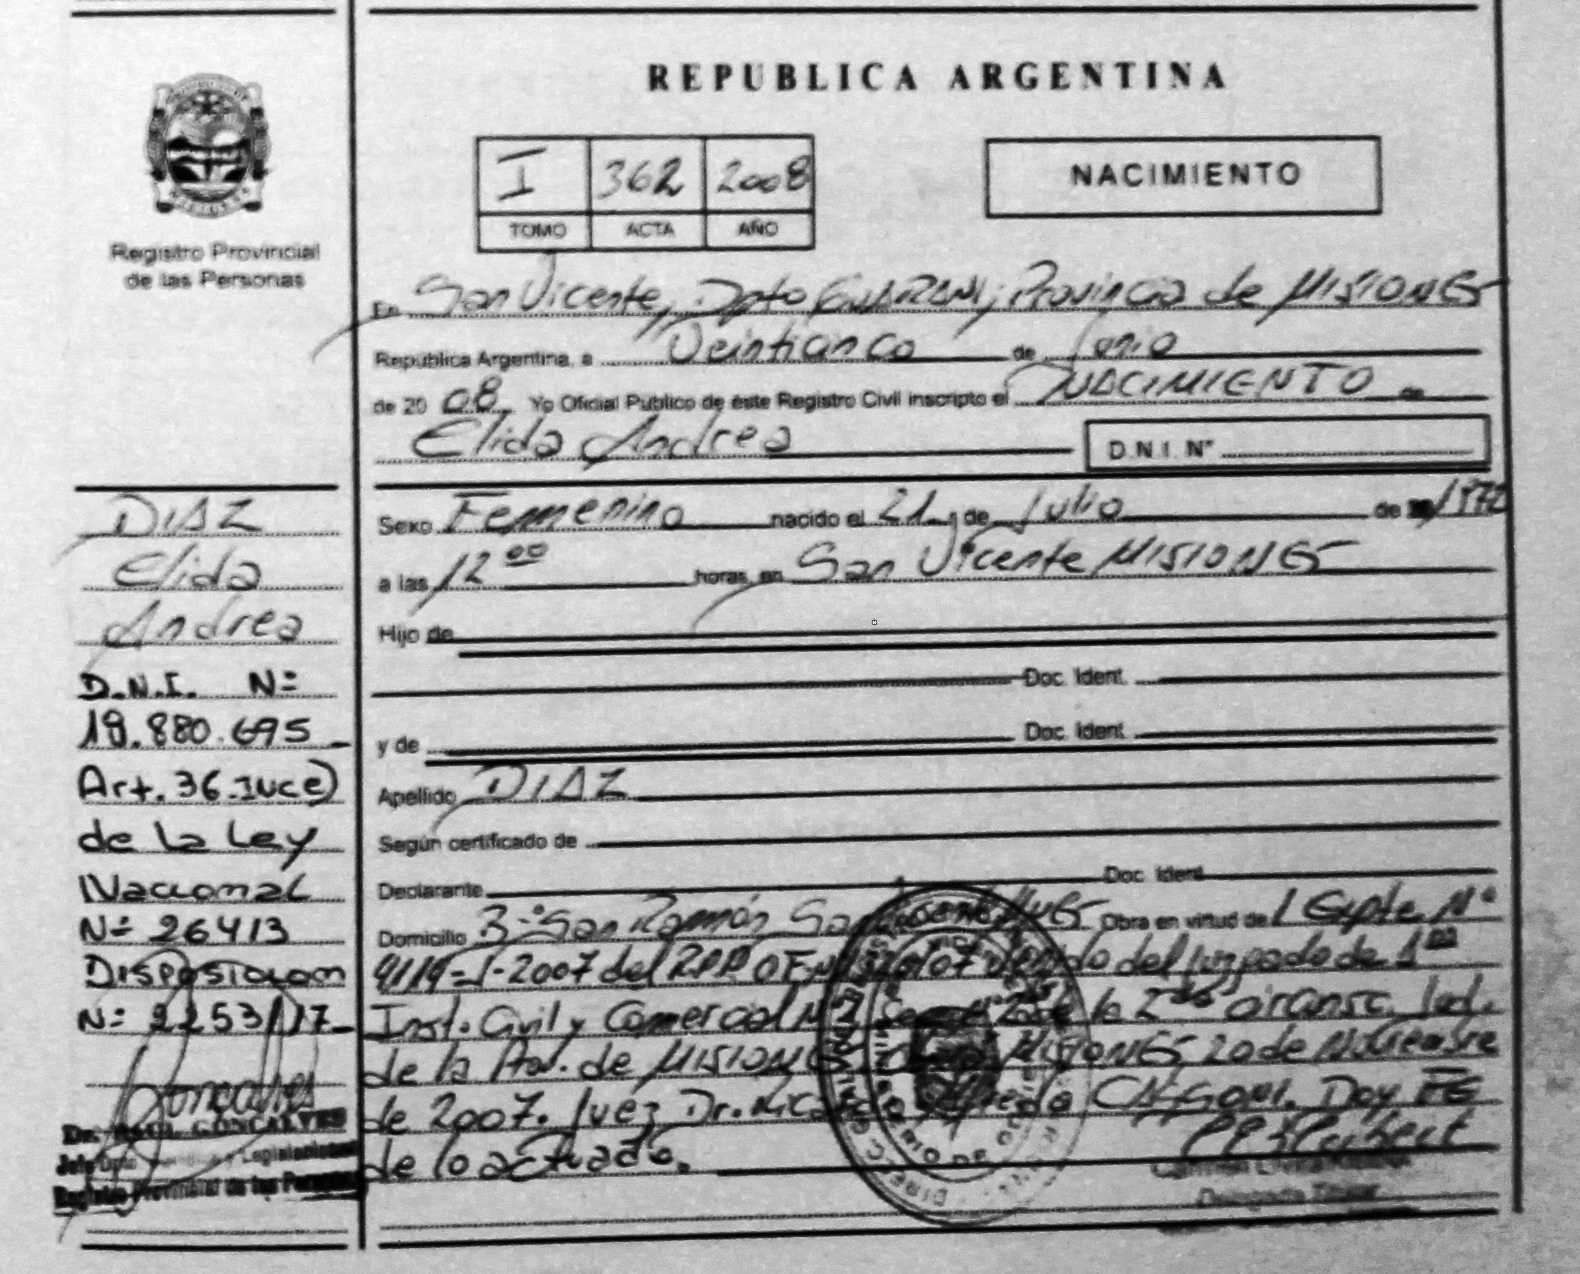 REPUBLICA ARGENTINA
I 362 2008
TOMO ACTA AÑO
NACIMIENTO
Registro Provincial
de las Personas
En San Vicente, Dpto GUARANI, Provincia de MISIONES
República Argentina, a Veinticinco de Junio
de 2008 Yo Oficial Público de éste Registro Civil inscripto el NACIMIENTO de
Elida Andrea
D.N.I. N°
DIAZ
Elida
Andrea
D.N.I. Nº
19.880.695
Art. 36 Ince)
de la Ley
Nacional
Nº 26413
Disposicion
Nº 2253/17
Dr. RAUL GONCALVES
Registro Provincial de las Personas
Sexo Femenino nacido el 21 de Julio de 1972
a las 12 00 horas, en San Vicente MISIONES
Hijo de
Doc. Ident.
y de Doc. Ident.
Apellido DIAZ
Según certificado de
Declarante Doc. Ident.
Domicilio Bº San Ramón San Obra en virtud de Expte Nº
2007 del R.P.P. del juzgado de 1ra
Inst. Civil y Comercial Nº 2 de la 2da circunsc. Jud.
de la Prov. de MISIONES MISIONES 20 de Noviembre
de 2007. Juez Dr. Doy FE
de lo actuado.